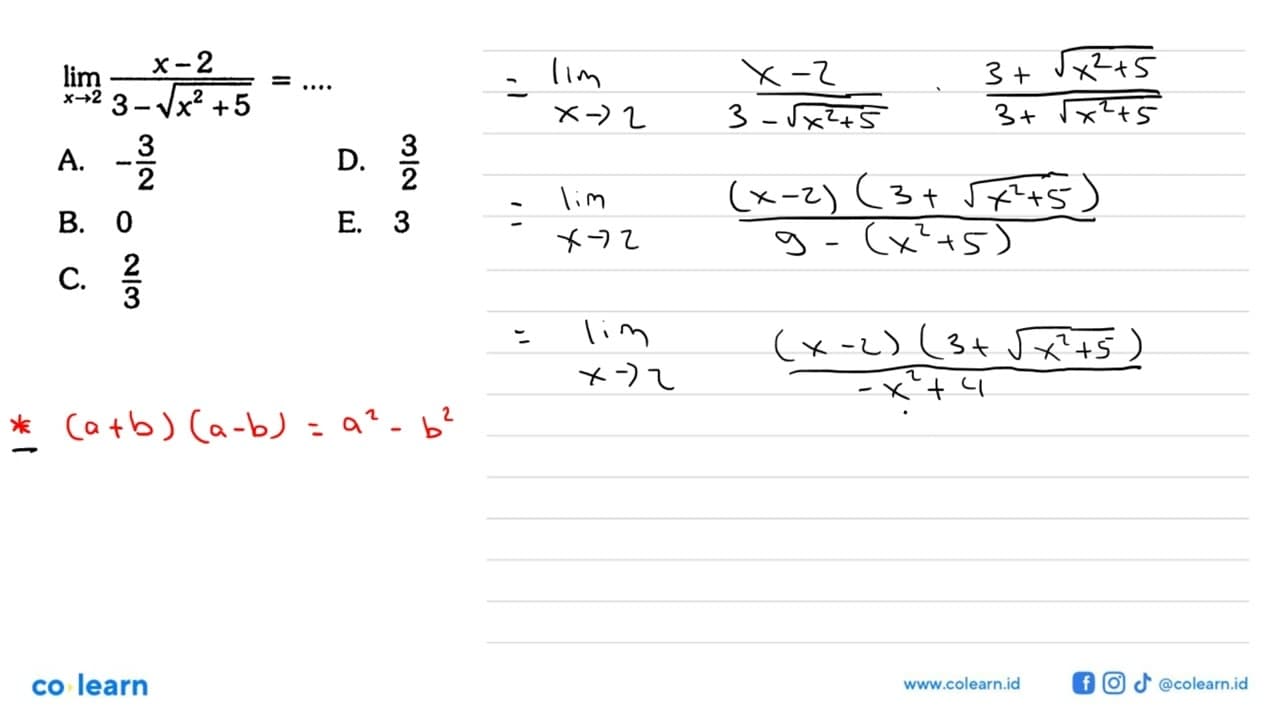 lim x→2 (x − 2)/(3 − √(x² + 5)) = ....
A. −3/2
D. 3/2
B. 0
E. 3
C. 2/3
= lim x→2 (x − 2)/(3 − √(x² + 5)) . (3 + √(x² + 5))/(3 + √(x² + 5))
= lim x→2 ((x − 2)(3 + √(x² + 5)))/(9 − (x² + 5))
= lim x→2 ((x − 2)(3 + √(x² + 5)))/(−x² + 4)
* (a + b)(a − b) = a² − b²
co learn
www.colearn.id
@colearn.id